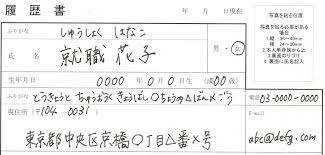 履歴書 年 月 日現在
写真を貼る位置
写真を貼る必要がある
場合
1. 縦 36~40mm
横 24~30mm
2. 本人単身胸から上
3. 裏面のりづけ
4. 裏面に氏名記入
ふりがな しゅうしょく はなこ
氏名 就職 花子 男・女
生年月日 0000年0月0日生(満00歳)
ふりがな とうきょうと ちゅうおうく きょうばし 〇ちょうめ△ばん×ごう
電話 03-0000-0000
現住所(〒104-0031)
E-mail
東京都中央区京橋〇丁目△番×号
abc@defg.com